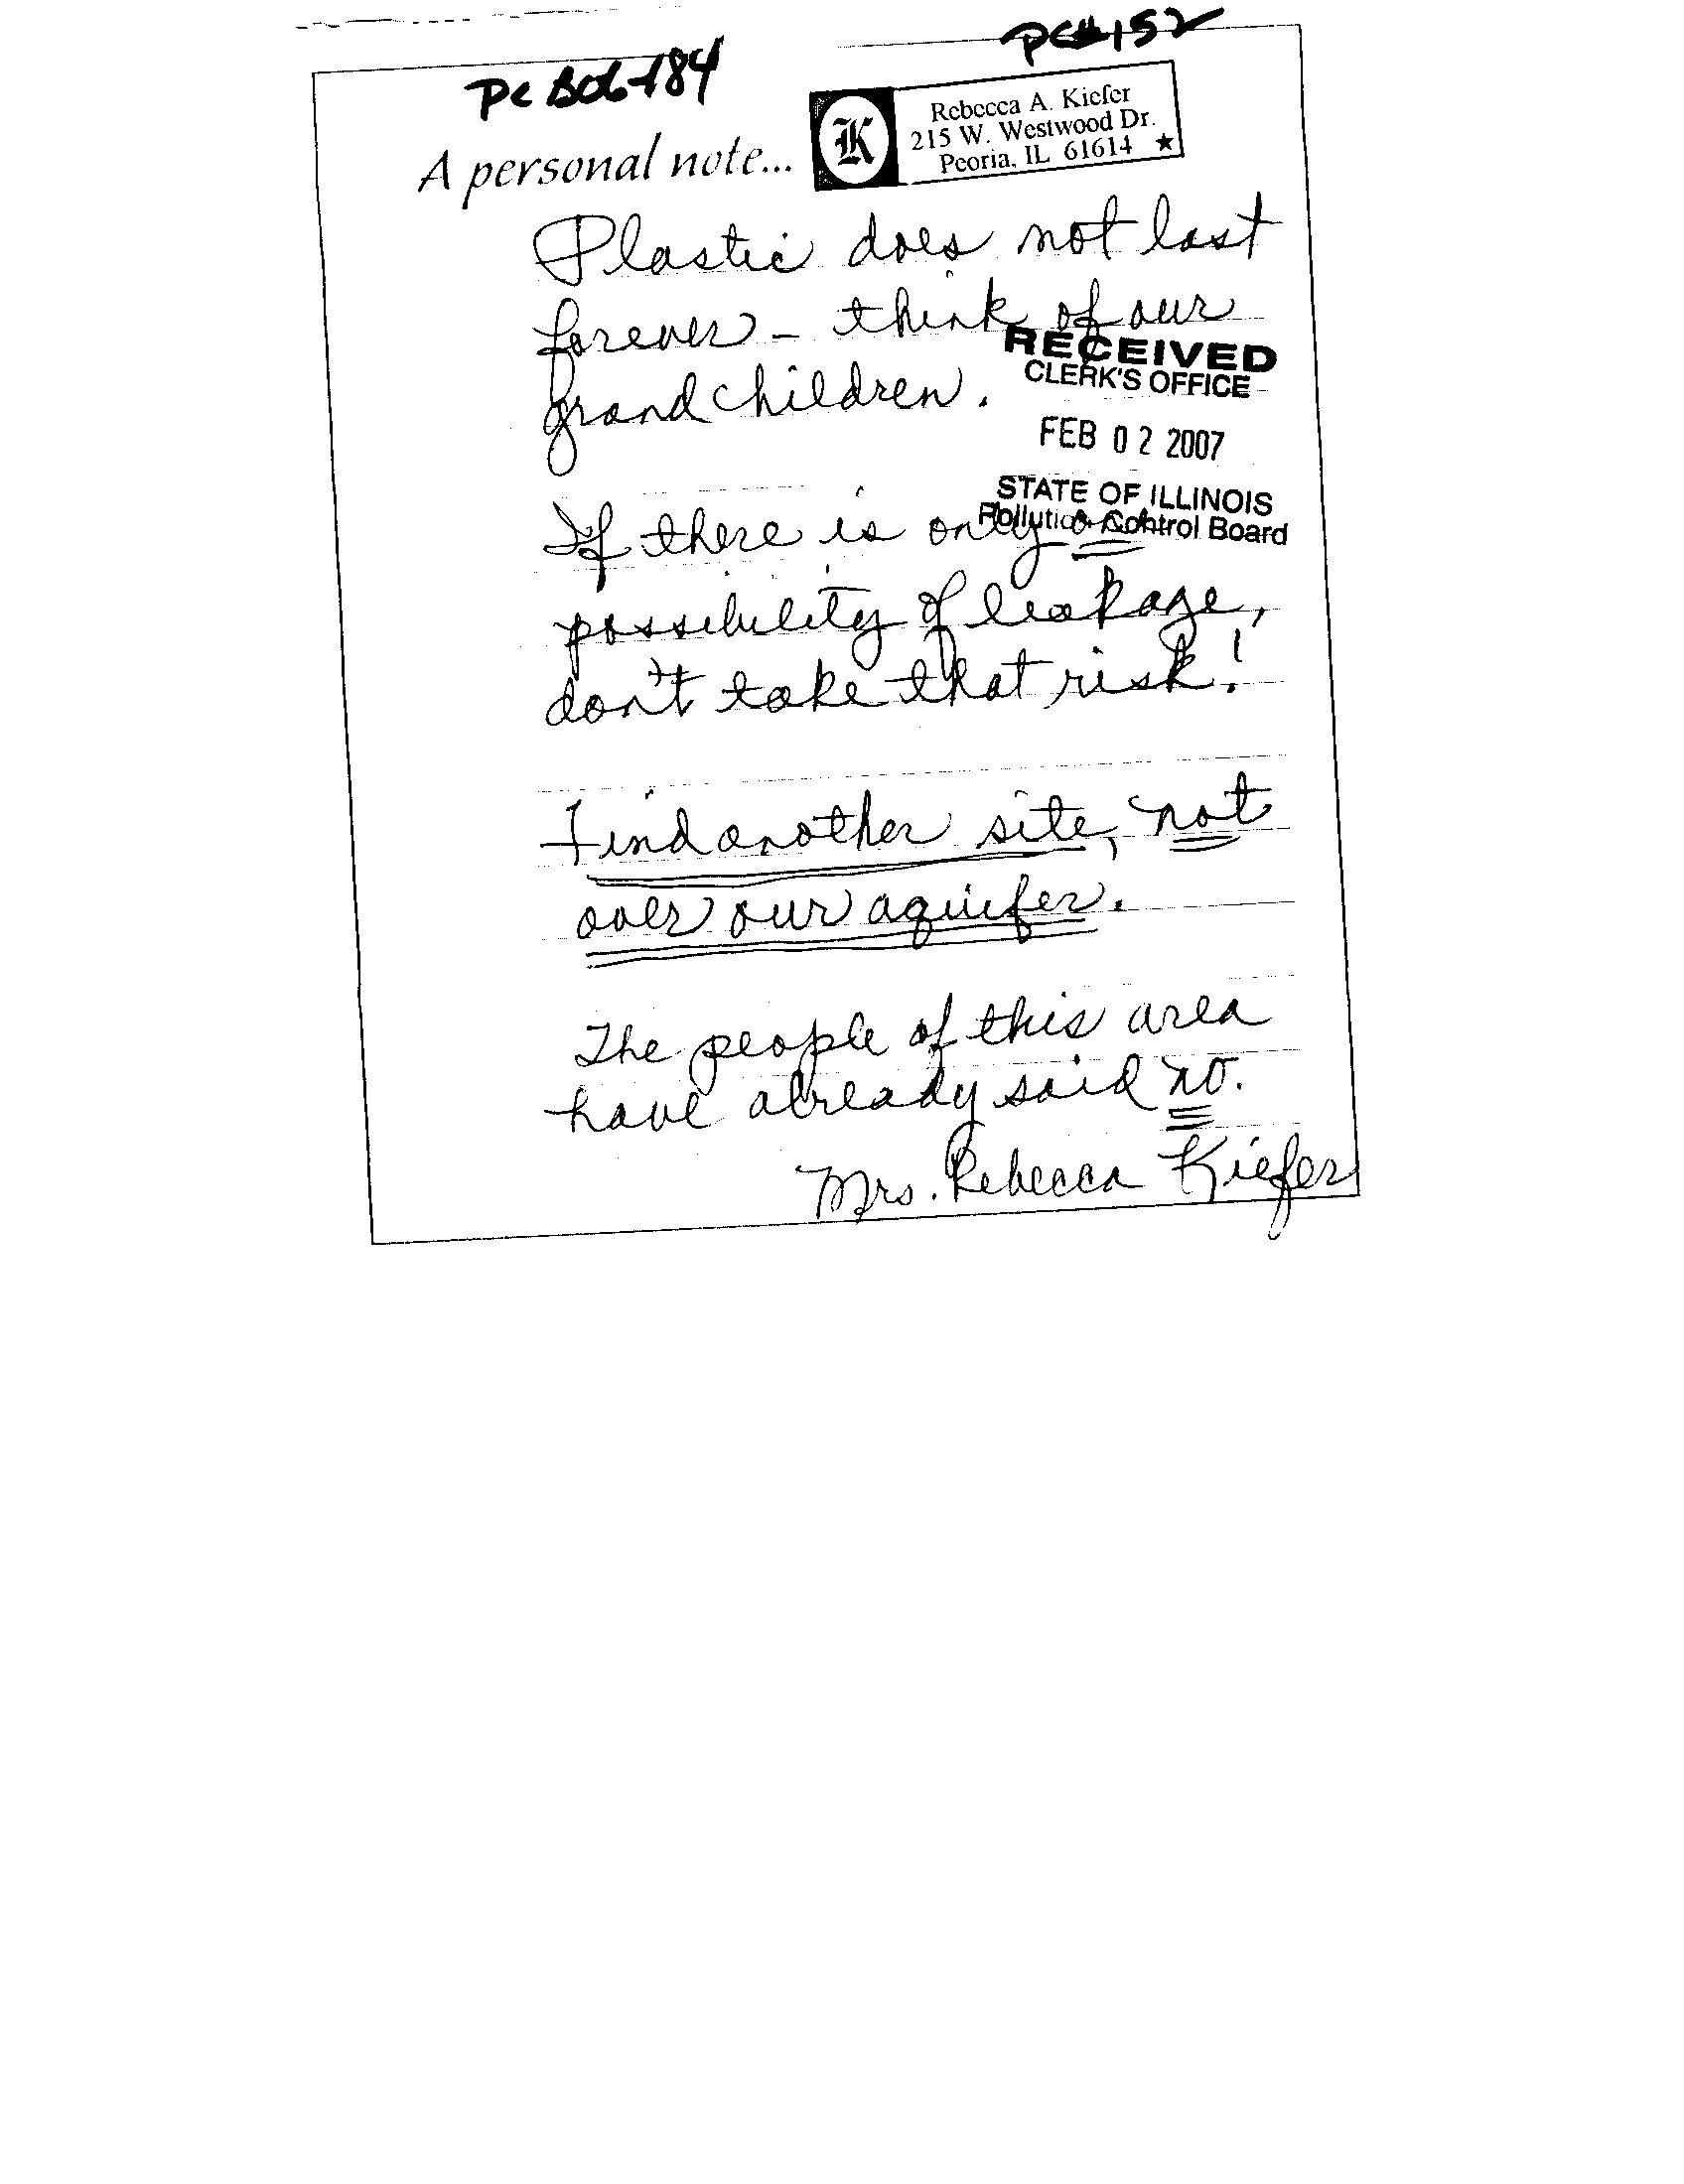 PC#152
PCB06-184
A personal note...
K
Rebecca A. Kiefer
215 W. Westwood Dr.
Peoria, IL 61614
Plastic does not last
forever - think of our
grandchildren.
RECEIVED
CLERK'S OFFICE
FEB 02 2007
STATE OF ILLINOIS
Pollution Control Board
If there is only one
possibility of leakage,
don't take that risk!
Find another site, not
over our aquifer.
The people of this area
have already said no.
Mrs. Rebecca Kiefer